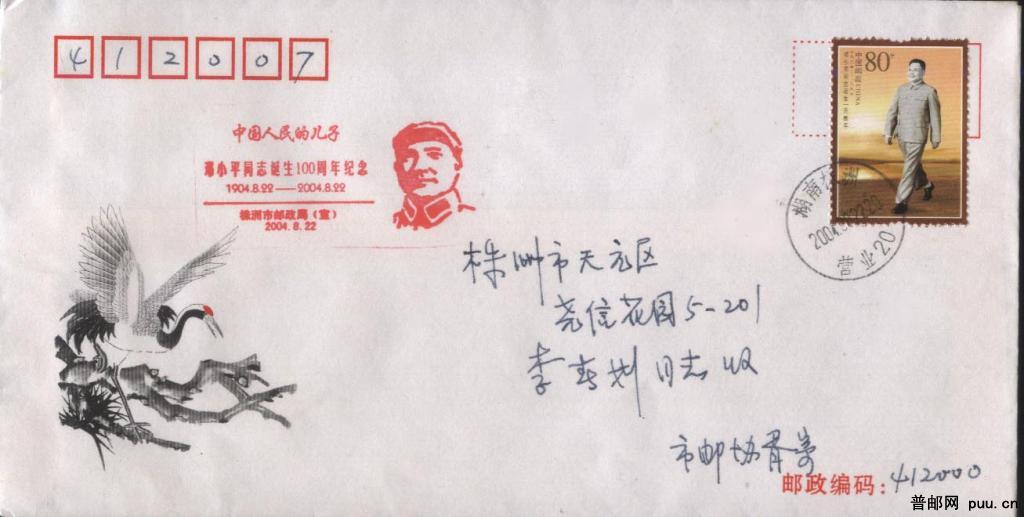 412007
中国人民的儿子
邓小平同志诞生100周年纪念
1904.8.22——2004.8.22
株洲市邮政局(宣)
2004.8.22
80分
中国邮政 CHINA
邓小平同志诞生一百周年
湖南株洲
营业20
株洲市天元区
尧信花园5-201
李春刬同志收
市邮协
邮政编码:412000
普邮网 puu.cn